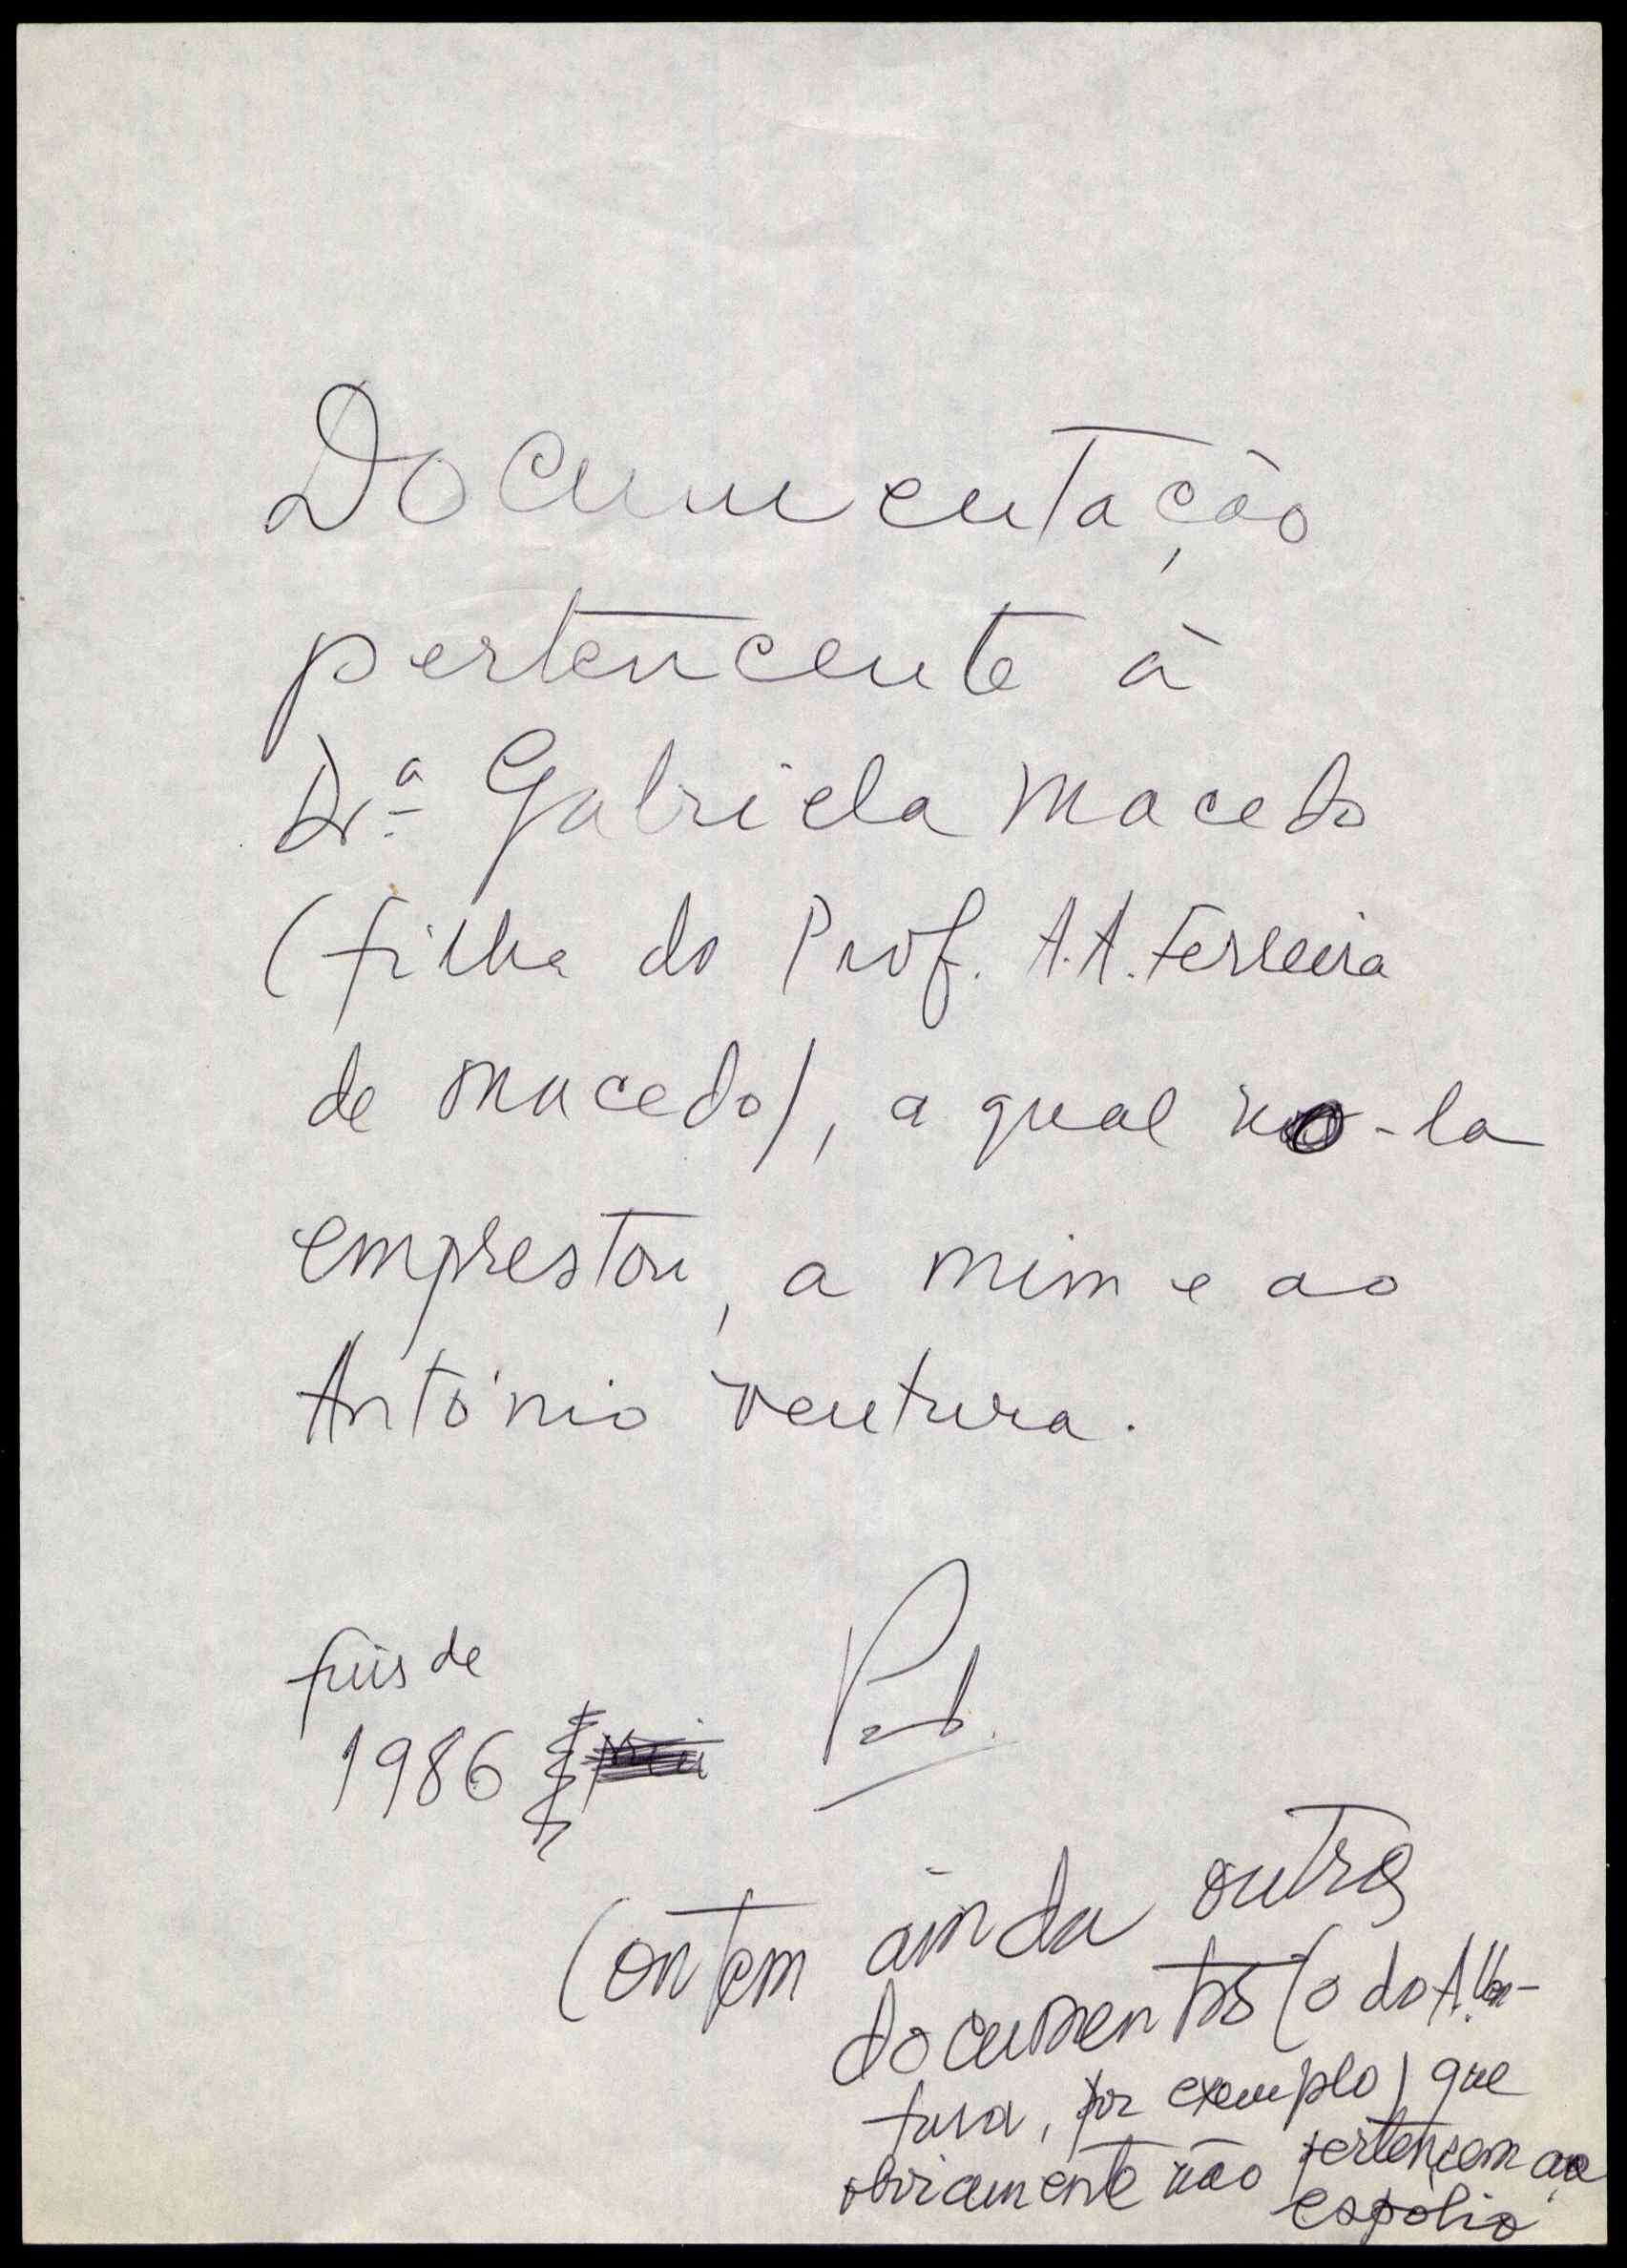 Documentação
pertencente à
Dr.ª Gabriela Macedo
(filha do Prof. A. A. Ferreira
de Macedo), a qual no-la
emprestou, a mim e ao
António Ventura.
fins de
1986
Contem ainda outros
documentos (o do A. Ven-
tura, por exemplo) que
obviamente não pertencem ao
espólio